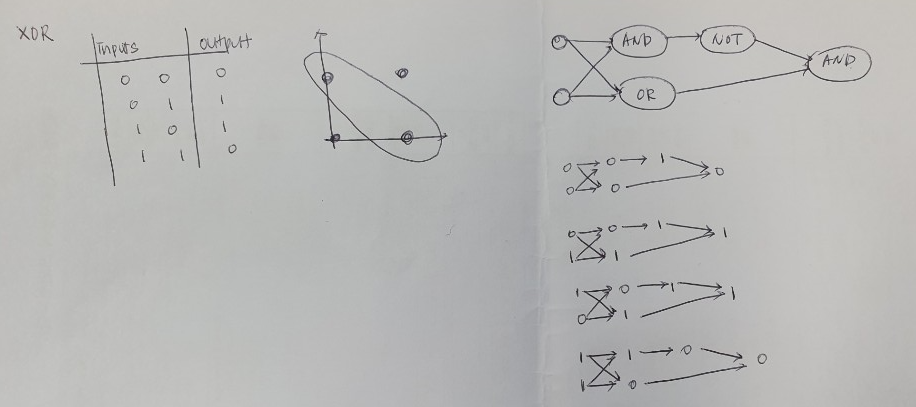 XOR
Inputs Output
0 0 0
0 1 1
1 0 1
1 1 0
AND NOT
AND
OR
0 0 1
0 0 0
0 0 1
1 1 1
1 0 1
0 1 1
1 1 0
1 0 0